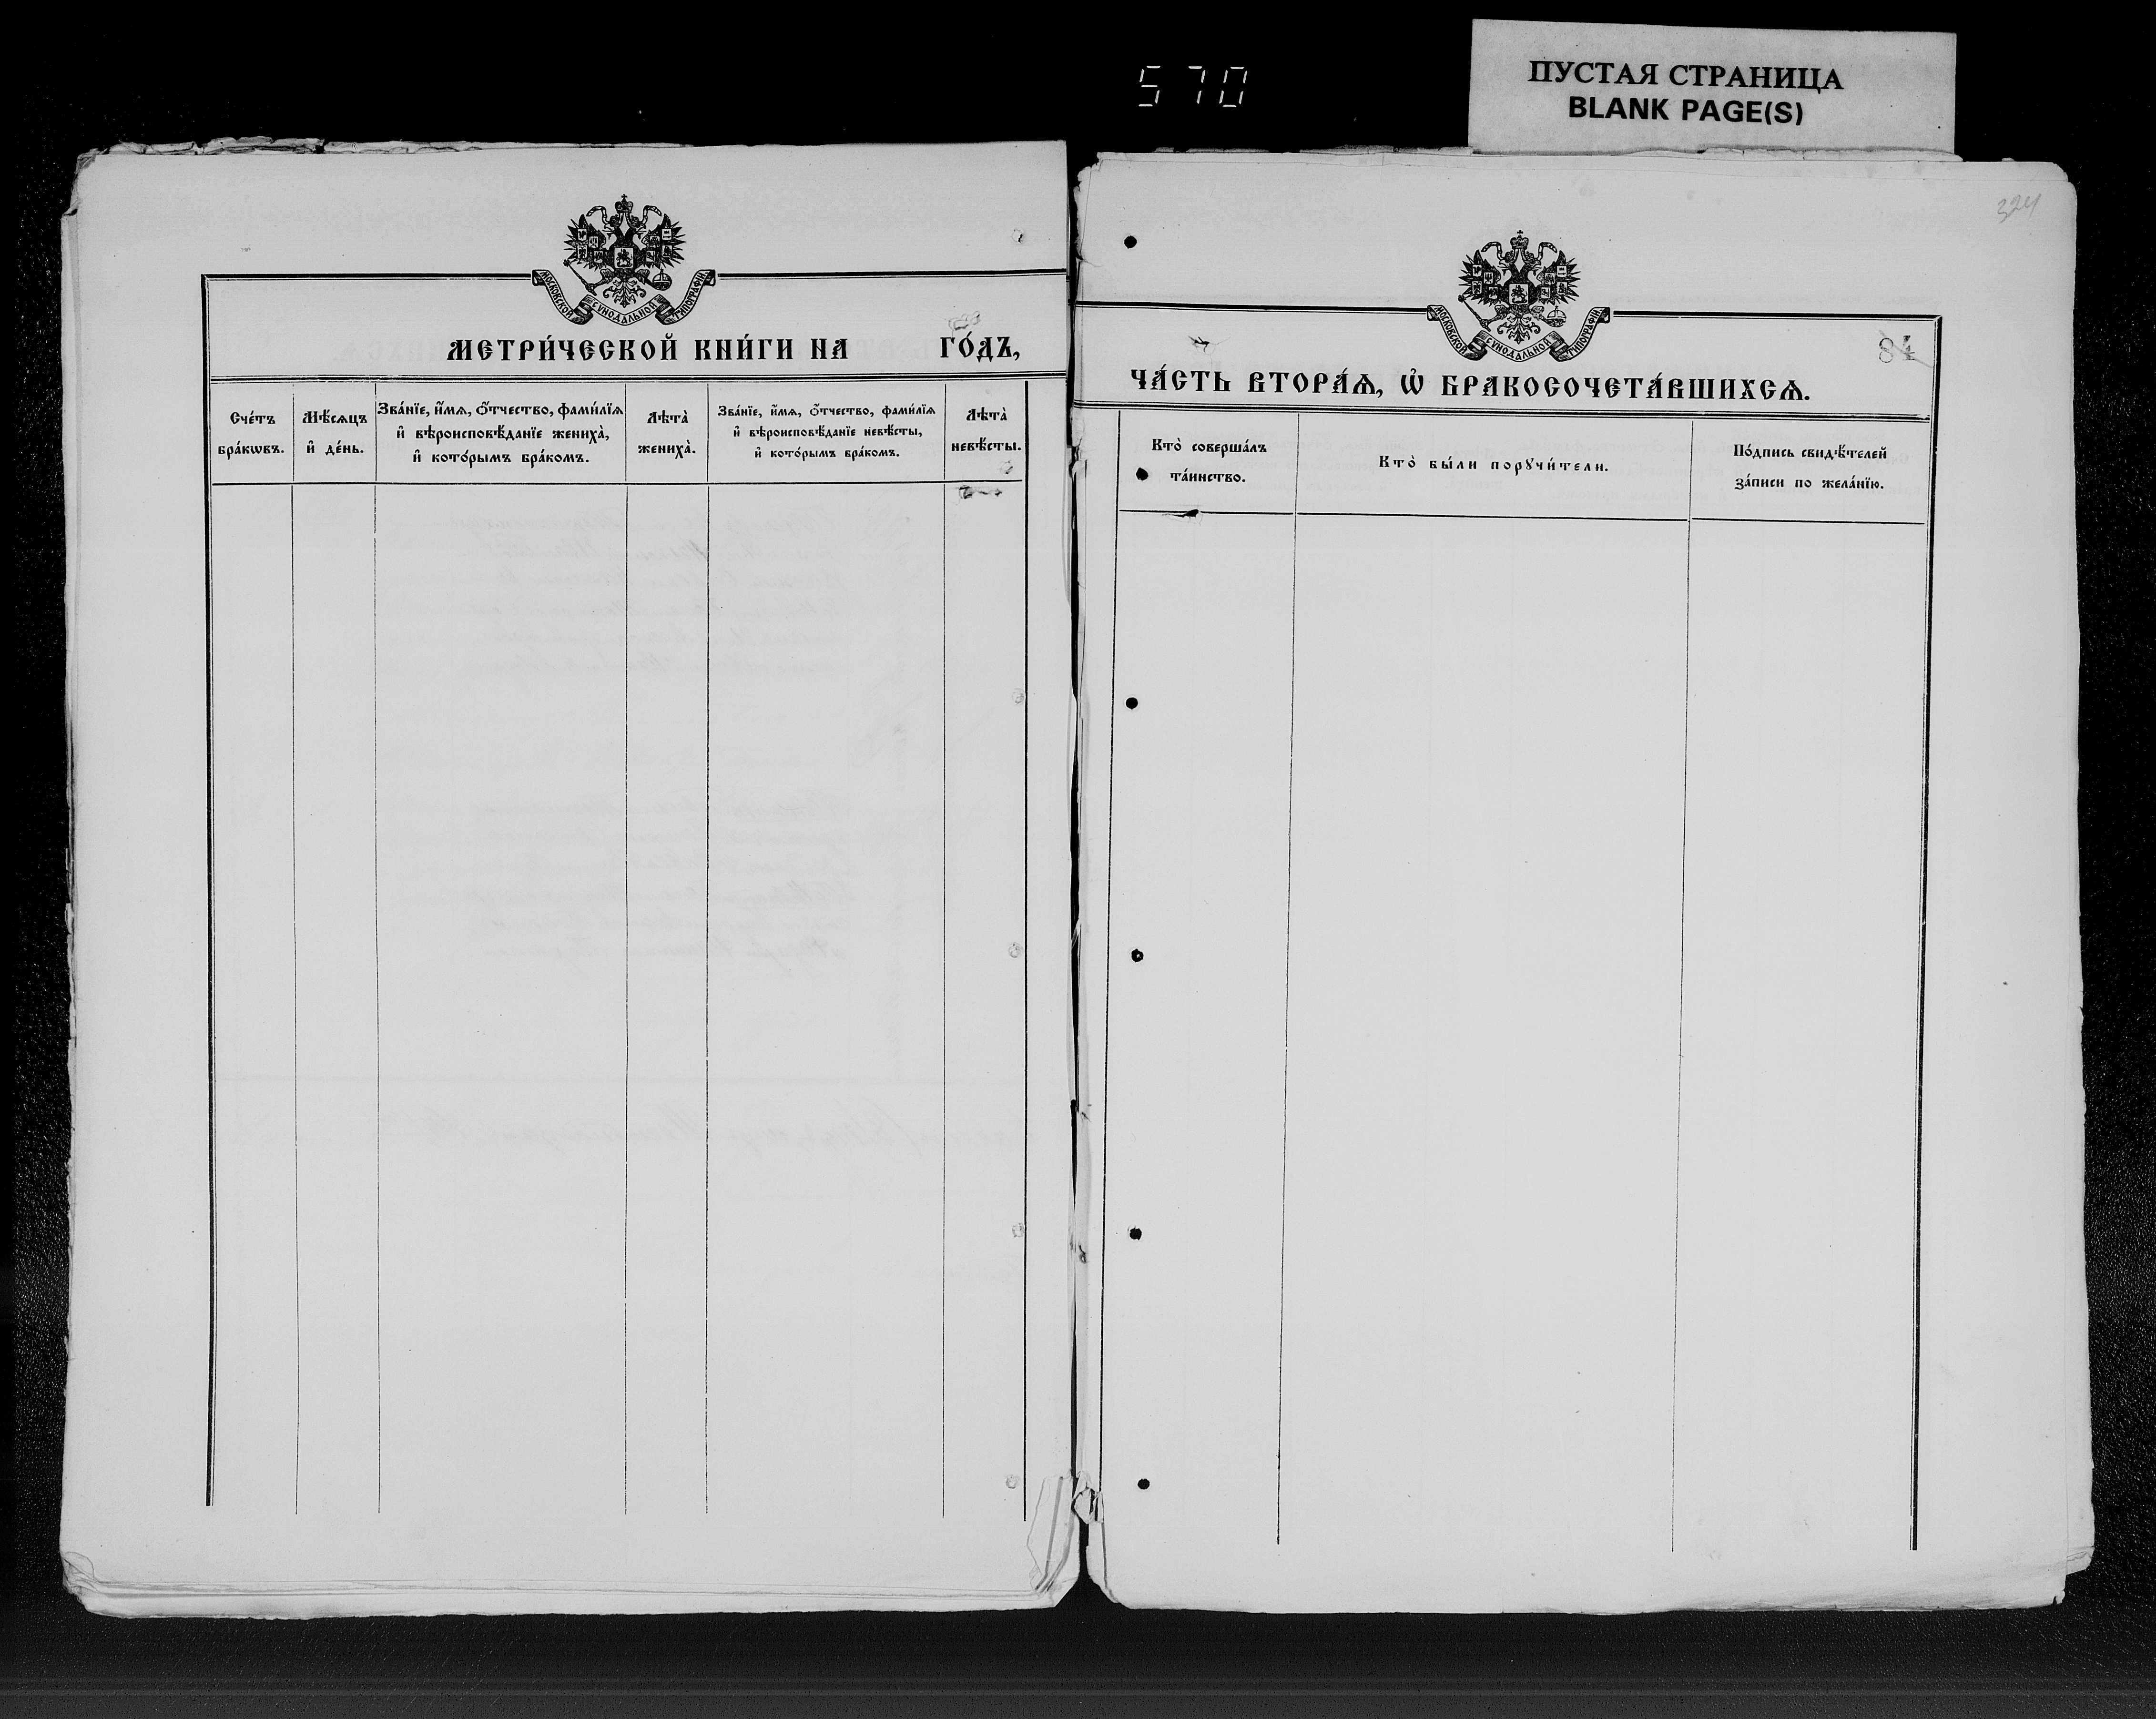 570
ПУСТАЯ СТРАНИЦА
BLANK PAGE(S)
324
МОСКОВСКОЙ СѴНОДАЛЬНОЙ ТИПОГРАФІИ
МЕТРИ́ЧЕСКОЙ КНИ́ГИ НА ГО́ДЪ,
Сче́тъ бра́кѡвъ.
Мѣ́сѧцъ и҆ де́нь.
Зва́нїе, и҆́мѧ, ѻ҆́тчество, фами́лїѧ
и҆ вѣроисповѣ́данїе жениха̀,
и҆ кото́рымъ бра́комъ.
Лѣта̀ жениха̀.
Зва́нїе, и҆́мѧ, ѻ҆́тчество, фами́лїѧ
и҆ вѣроисповѣ́данїе невѣ́сты,
и҆ кото́рымъ бра́комъ.
Лѣта̀ невѣ́сты.
МОСКОВСКОЙ СѴНОДАЛЬНОЙ ТИПОГРАФІИ
84
ЧА́СТЬ ВТОРА́Ѧ, Ѡ҆ БРАКОСОЧЕТА́ВШИХСѦ.
Кто̀ соверша́лъ
та́инство.
Кто̀ бы́ли порꙋчи́тели.
По́дпись свидѣ́телей
за́писи по жела́нїю.